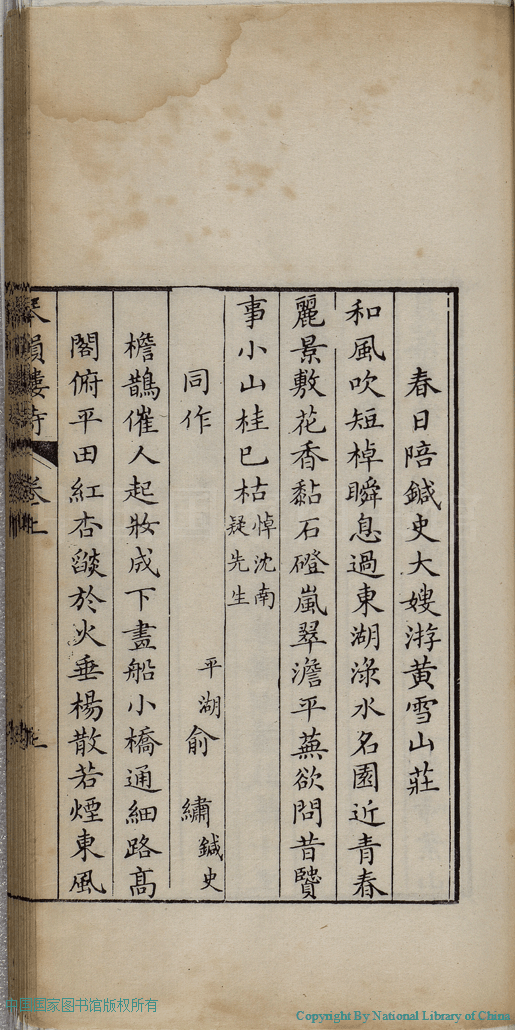 春日陪鍼史大嫂游黄雪山莊
和風吹短棹瞬息過東湖淥水名園近青春
麗景敷花香黏石磴嵐翠澹平蕪欲問昔贒
事小山桂巳枯悼沈南疑先生
同作 平湖俞繡鍼史
檐鵲催人起妝成下畫船小橋通細路高
閣俯平田紅杏燄於火垂楊散若煙東風
韻樓詩 卷上
中国国家图书馆版权所有
Copyright By National Library of China